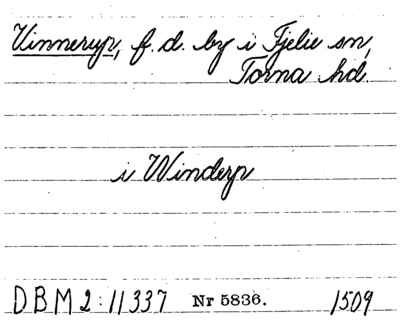 Vinnerup, f. d. by i Fjelie sn,
Torna hd.
i Winderp
DBM 2:11337 Nr 5836. 1509